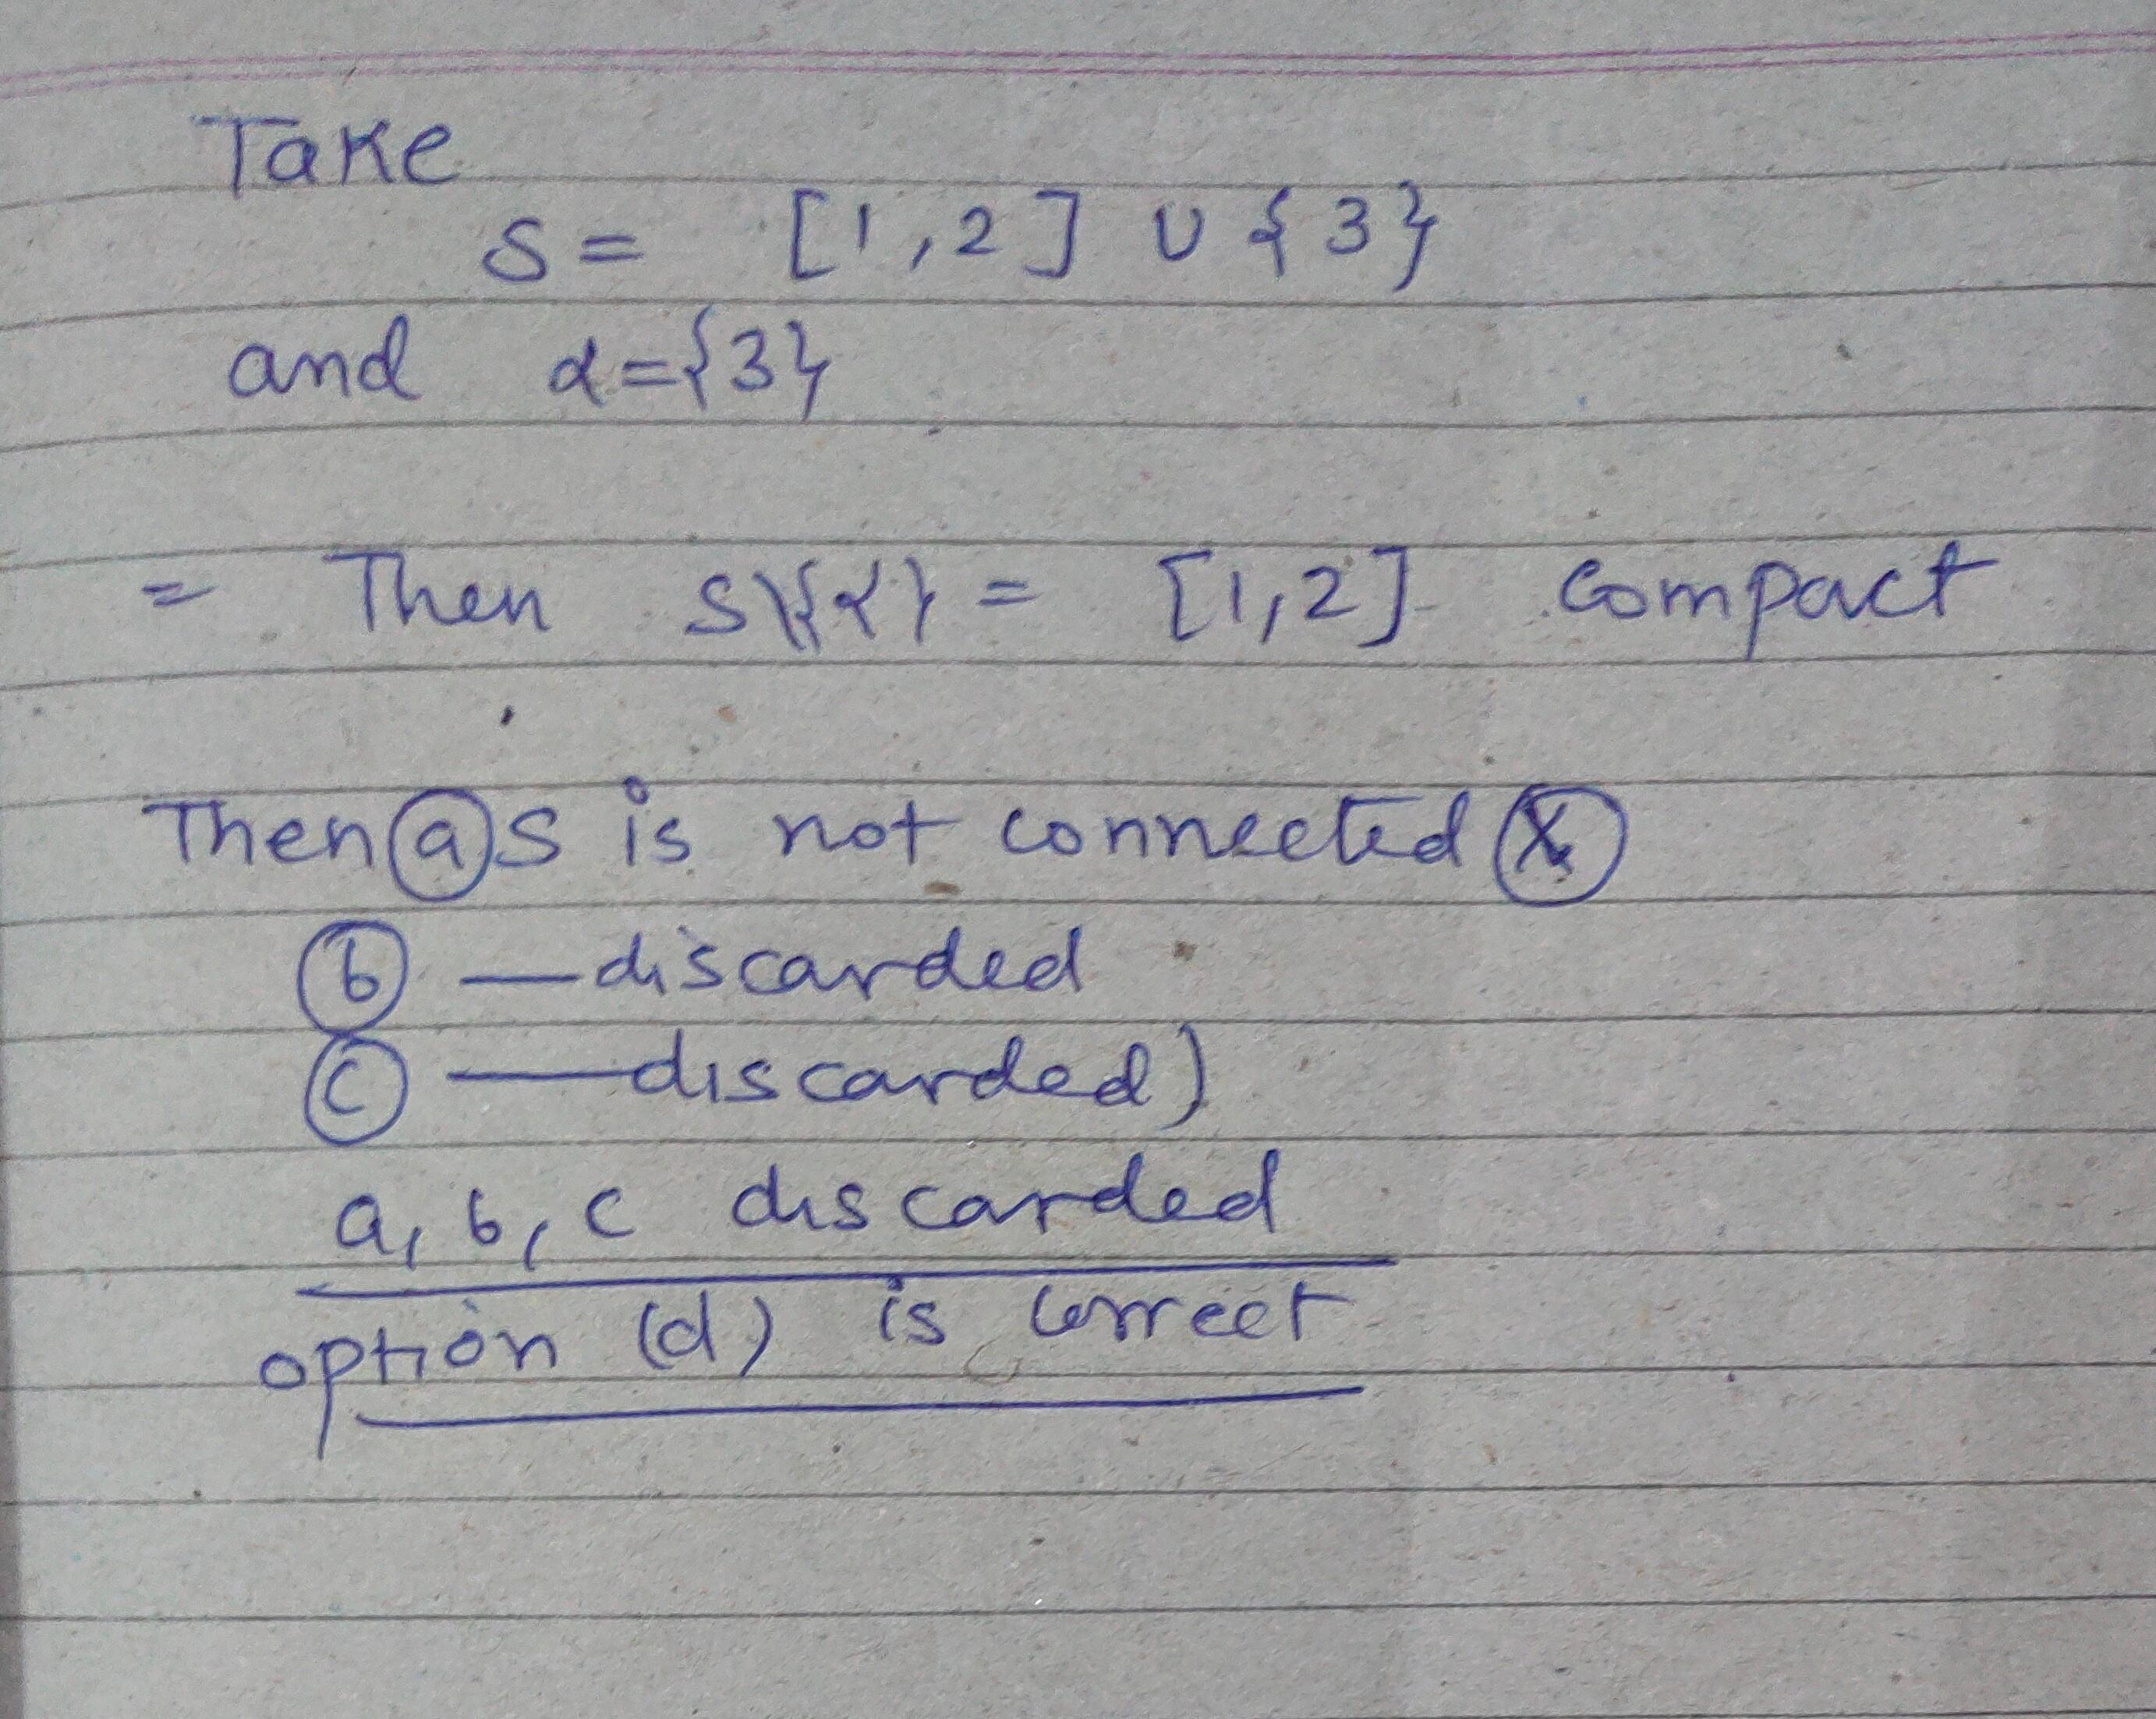 Take
S = [1,2] ∪ {3}
and α={3}
= Then S\{α} = [1,2] compact
Then ⓐ S is not connected ⓧ
ⓑ — discarded
ⓒ — discarded)
a, b, c discarded
option (d) is correct